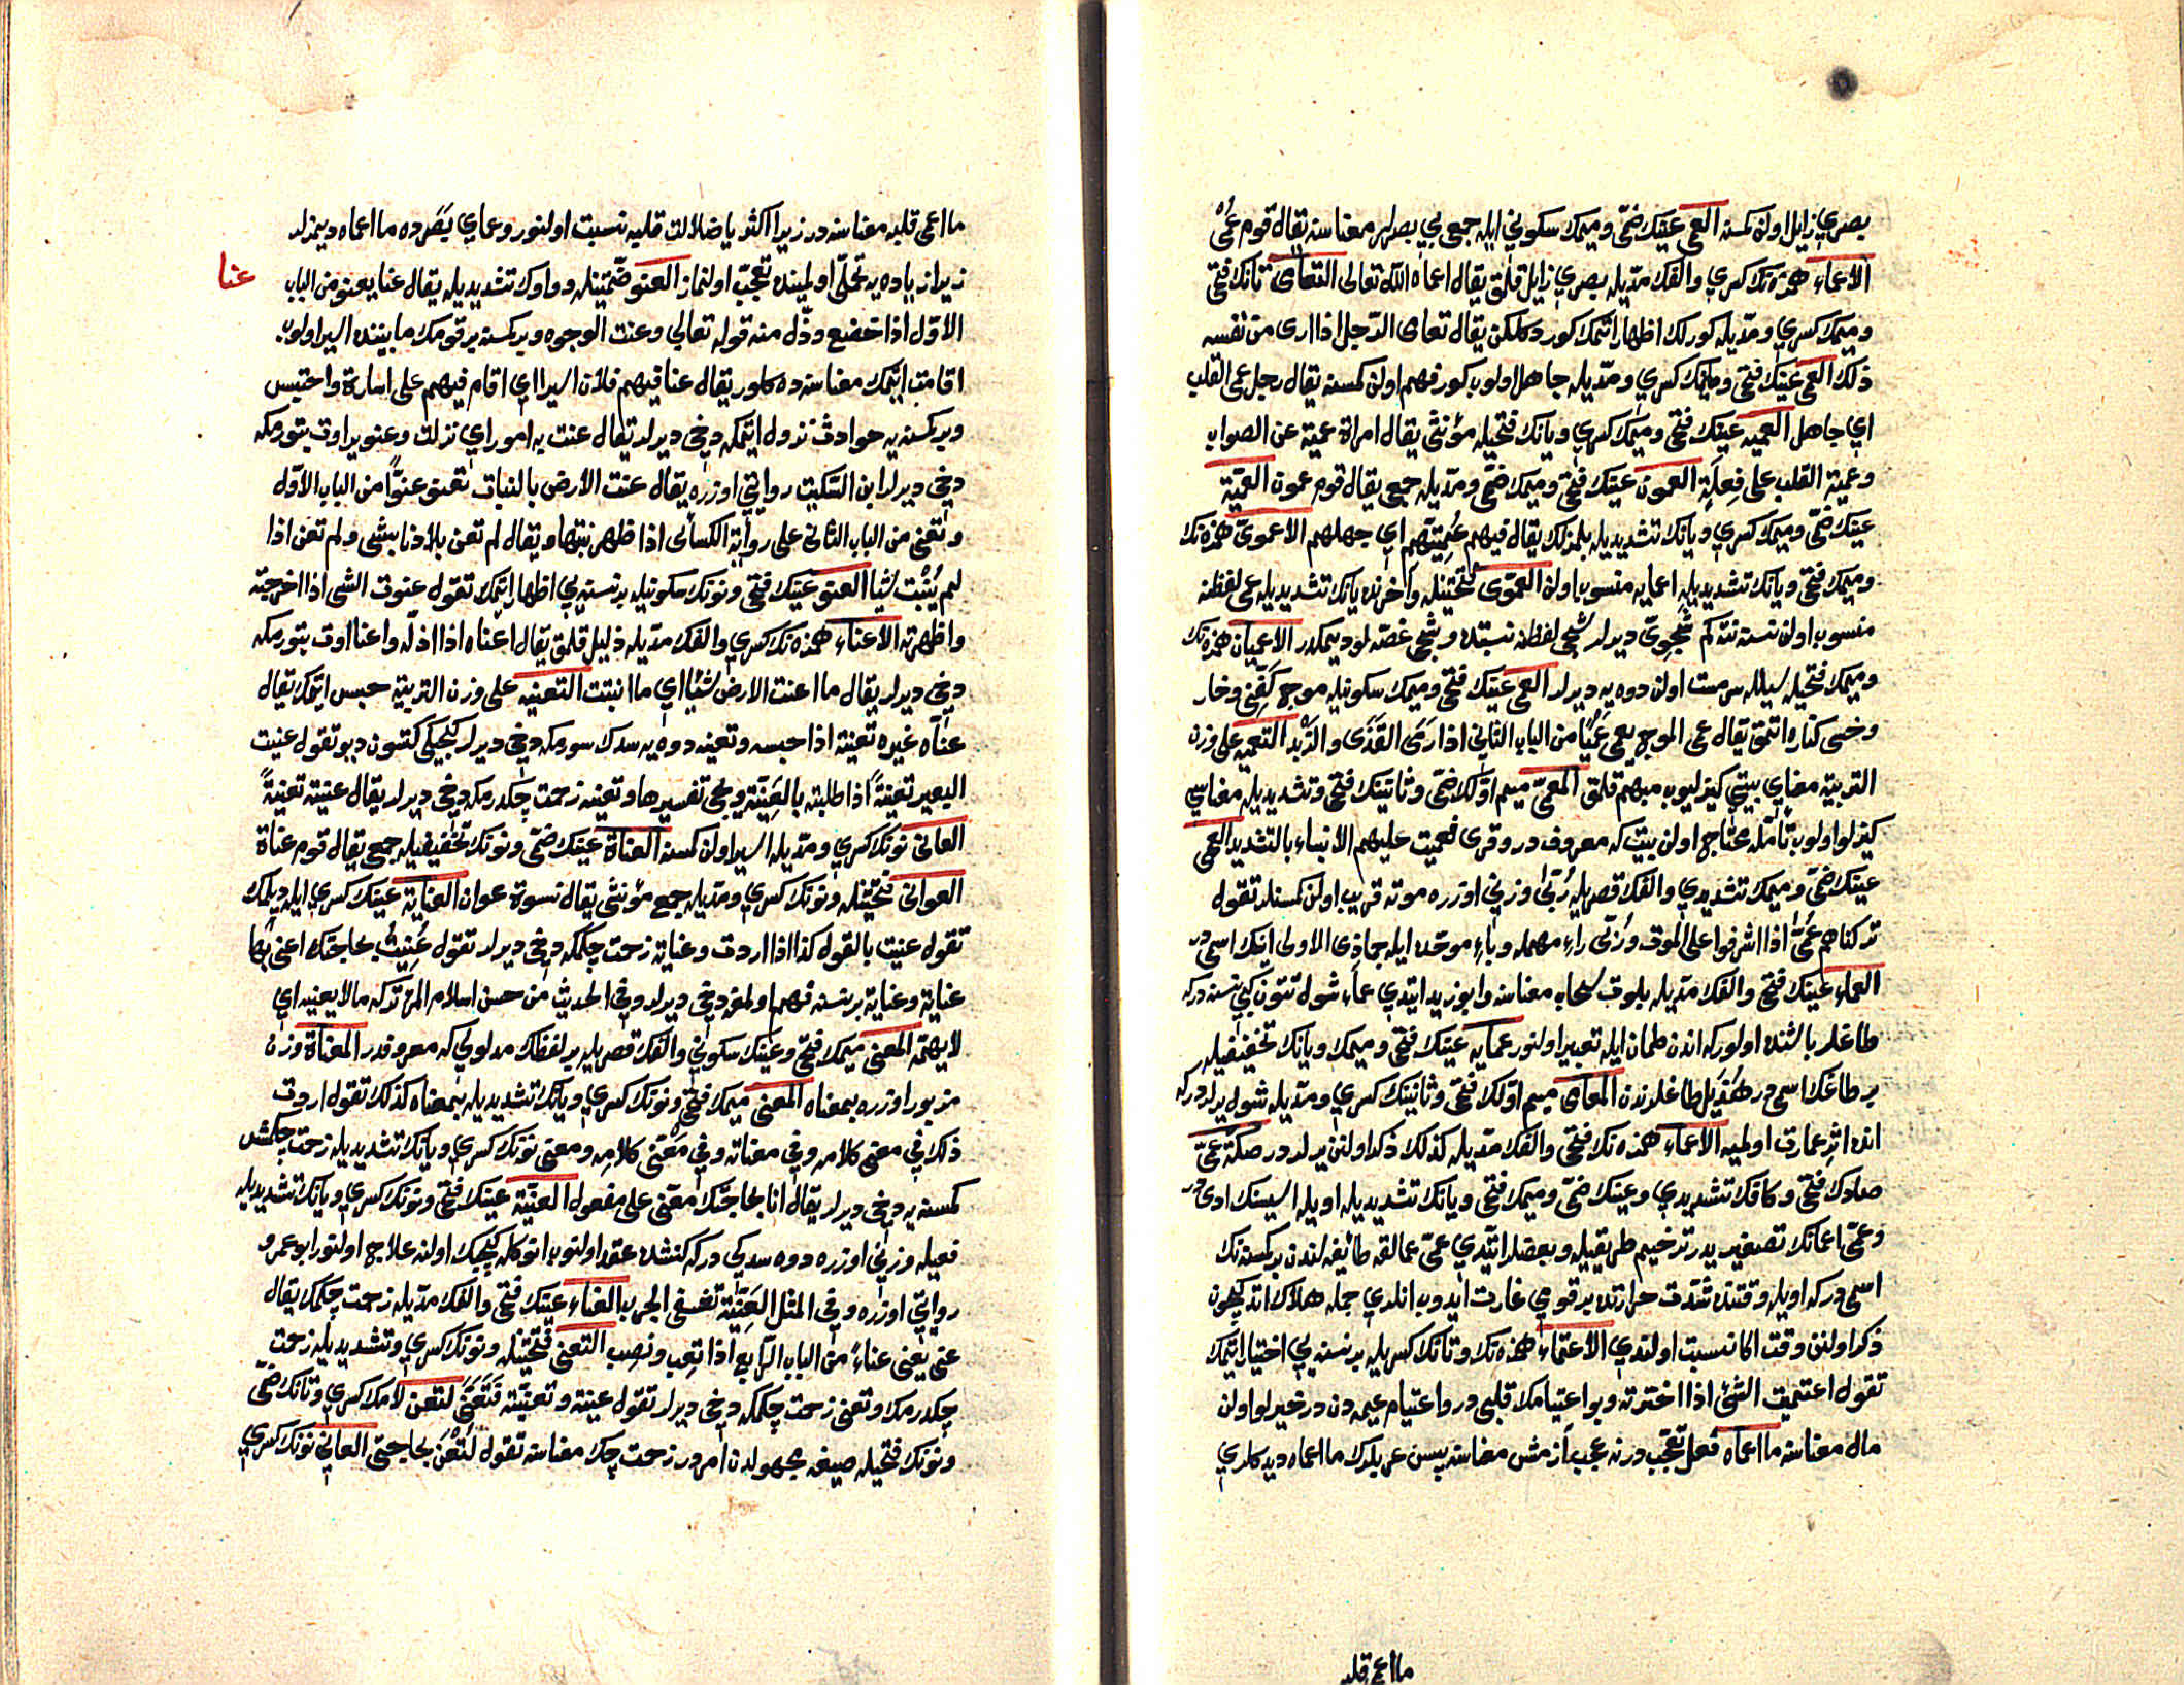 بصری زایل اولن کمسنه العمی عینك ضمی و میمك سکونی ایله جمعی بی بصرلر معناسنه یقال قوم عمی
الاعماء همزه‌نك کسری و الفك مدیله بصری زایل قلمق یقال اعماه الله تعالی التعامی تانك فتحی
و میمك کسری و مدیله کورلك اظهار اتمك کور دکلکن یقال تعامی الرجل اذا اری من نفسه
ذلك العمی عینك فتحی و میمك کسری و مدیله جاهل اولوب کور فهم اولن کمسنه یقال رجل عمی القلب
ای جاهل العمیه عینك فتحی و میمك کسری و یانك فتحیله مؤنثی یقال امراة عمیة عن الصواب
و عمیة القلب علی فعلة العمون عینك فتحی و میمك ضمی و مدیله جمعی یقال قوم عمون العمیة
عینك ضمی و میمك کسری و یانك تشدیدیله بلمزلك یقال فیهم عمیتهم ای جهلهم الاعموی همزه‌نك
و میمك فتحی و یانك تشدیدیله اعمایه منسوب اولن العموی فتحتینله و آخرنده یانك تشدیدیله عمی لفظنه
منسوب اولن نسنه نته کم شجوی دیرلر شجی لفظنه نسبتده و شجی غصه لو دیمکدر الاعمیان همزه‌نك
و میمك فتحیله سیلله مست اولن دوه‌یه دیرلر العمی عینك فتحی و میمك سکونیله موج کفن و خار
و خسی کناره اتمق یقال عمی الموج یعمی عمیا من الباب الثانی اذا رمی القذی و الزبد التعمیه علی وزن
التربیة معنای بیتی کیزلیوب مبهم قلمق المعمی میم اولك ضمی و ثانینك فتحی و تشدیدیله معناسی
کیزلو اولوب تأمله محتاج اولن بیت که معروفدر و قری فعمیت علیهم الانباء بالتشدید العمی
عینك ضمی و میمك تشدیدی و الفك قصریله ربی وزنی اوزره موته قریب اولن کمسنلر تقول
ترکناهم عمی اذا اشرفوا علی الموت و ربی راء مهمله و باء موحده ایله جماذی الاولی اینك اسمی در
العماء عینك فتحی و الفك مدیله بلوت سحاب معناسنه و ابو زید ایتدی عماء شول تتون کبی نسنه درکه
طاغلر باشنده اولورکه اندن طمان ایله تعبیر اولنور عمایه عینك فتحی و میمك و یانك تخفیفیله
بر طاغك اسمی در هذیل طاغلرندن المعامی میم اولك فتحی و ثانینك کسری و مدیله شول یرلردرکه
انده اثر عمارت اولمیه الاعماء همزه‌نك فتحی و الفك مدیله کذلك ذکر اولنن یرلردر صکة عمی
صادك فتحی و کافك تشدیدی و عینك ضمی و میمك فتحی و یانك تشدیدیله اویله اسیسنك ادی در
و عمی اعمانك تصغیریدر ترخیم طریقیله و بعضلر ایتدی عمی عمالقه طائفه لندن بر کسنه‌نك
اسمی درکه اویله وقتنده شدت حرارتده بر قومی غارت ایدوب انلری جمله هلاك اتدکیچون
ذکر اولنن وقت اکا نسبت اولندی الاعتماء همزه‌نك و تانك کسریله بر نسنه‌یی اختیار اتمك
تقول اعتمیت الشیء اذا اخترته و بو اعتیامك قلبی در و اعتیام عیمه‌دن در خیرلو اولن
مال معناسنه ما اعماه فعل تعجب در نه عجب ازمش معناسنه پس عربلرك ما اعماه دیدکلری
ما اعمی قلبه
ما اعمی قلبه معناسنه در زیرا اکثریا ضلالت قلبه نسبت اولنور و عمای بصرده ما اعماه دیمزلر
زیرا زیاده‌یه تحملی اولمینده تعجب اولنماز العنو ضمتینله و واوك تشدیدیله یقال عنا یعنو من الباب
عنا
الاول اذا خضع و ذل منه قوله تعالی و عنت الوجوه و بر کسنه بر قومك مابیننده اسیر اولوب
اقامت اتمك معناسنده کلور یقال عنا فیهم فلان اسیرا ای اقام فیهم علی اسارة و احتبس
و بر کسنه‌یه حوادث نزول اتمکه دخی دیرلر یقال عنت به امور ای نزلت و عنو یر اوت بتورمکه
دخی دیرلر ابن السکیت روایتی اوزره یقال عنت الارض بالنبات تعنو عنوا من الباب الاول
و تعنی من الباب الثانی علی روایة الکسائی اذا ظهر نبتها و یقال لم تعن بلادنا بشی و لم تعن اذا
لم ینبت شیا العنو عینك فتحی و نونك سکونیله بر نسنه‌یی اظهار اتمك تقول عنوت الشی اذا اخرجته
و اظهرته الاعناء همزه‌نك کسری و الفك مدیله ذلیل قلمق یقال اعناه اذا اذله و اعنا اوت بتورمکه
دخی دیرلر یقال ما اعنت الارض شیا ای ما انبتت التعنیه علی وزن التربیة حبس اتمك یقال
عناه غیره تعنیة اذا حبسه و تعنیه دوه‌یه سدك سورمکه دخی دیرلر کیجیکی کتسون دیو تقول عنیت
البعیر تعنیة اذا طلیته بالعنیة و یجی تفسیرها و تعنیه زحمت چکدرمکه دخی دیرلر یقال عنیته تعنیة
العانی نونك کسری و مدیله اسیر اولن کمسنه العناة عینك ضمی و نونك تخفیفیله جمعی یقال قوم عناة
العوانی فتحتینله و نونك کسری و مدیله جمع مؤنثی یقال نسوة عوان العنایة عینك کسری ایله دیلمك
تقول عنیت بالقول کذا اذا اردت و عنایة زحمت چکمکه دخی دیرلر تقول عنیت بحاجتك اعنی بها
عنایة و عنایة بر نسنه فهم اولمغه دخی دیرلر و فی الحدیث من حسن اسلام المرء ترکه ما لا یعنیه ای
لا یهمه المعنی میمك فتحی و عینك سکونی و الفك قصریله بر لفظك مدلولی که معروفدر المعناة وزن
مزبور اوزره بمعناه المعنی میمك فتحی و نونك کسری و یانك تشدیدیله بمعناه کذلك تقول اردت
ذلك فی معنی کلامه و فی معناته و فی معنی کلامه و معنی نونك کسری و یانك تشدیدیله زحمت چکمش
کمسنه‌یه دخی دیرلر یقال انا بحاجتك معنی علی مفعول العنیة عینك فتحی و نونك کسری و یانك تشدیدیله
فعیله وزنی اوزره دوه سدکی درکه کنشده عقد اولنوب انوکله کیجیك اولنه علاج اولنور ابو عمرو
روایتی اوزره و فی المثل العنیة تشفی الجرب العناء عینك فتحی و الفك مدیله زحمت چکمك یقال
عنی یعنی عناء من الباب الرابع اذا تعب و نصب التعنی فتحتینله و نونك کسری و تشدیدیله زحمت
چکدرمك و تعنی زحمت چکمکه دخی دیرلر تقول عنیته و تعنیته فتعنی لتعن لامك کسری و تانك ضمی
و نونك فتحیله صیغه مجهولدن امردر زحمت چك معناسنه تقول لتعن بحاجتی العانی نونك کسری